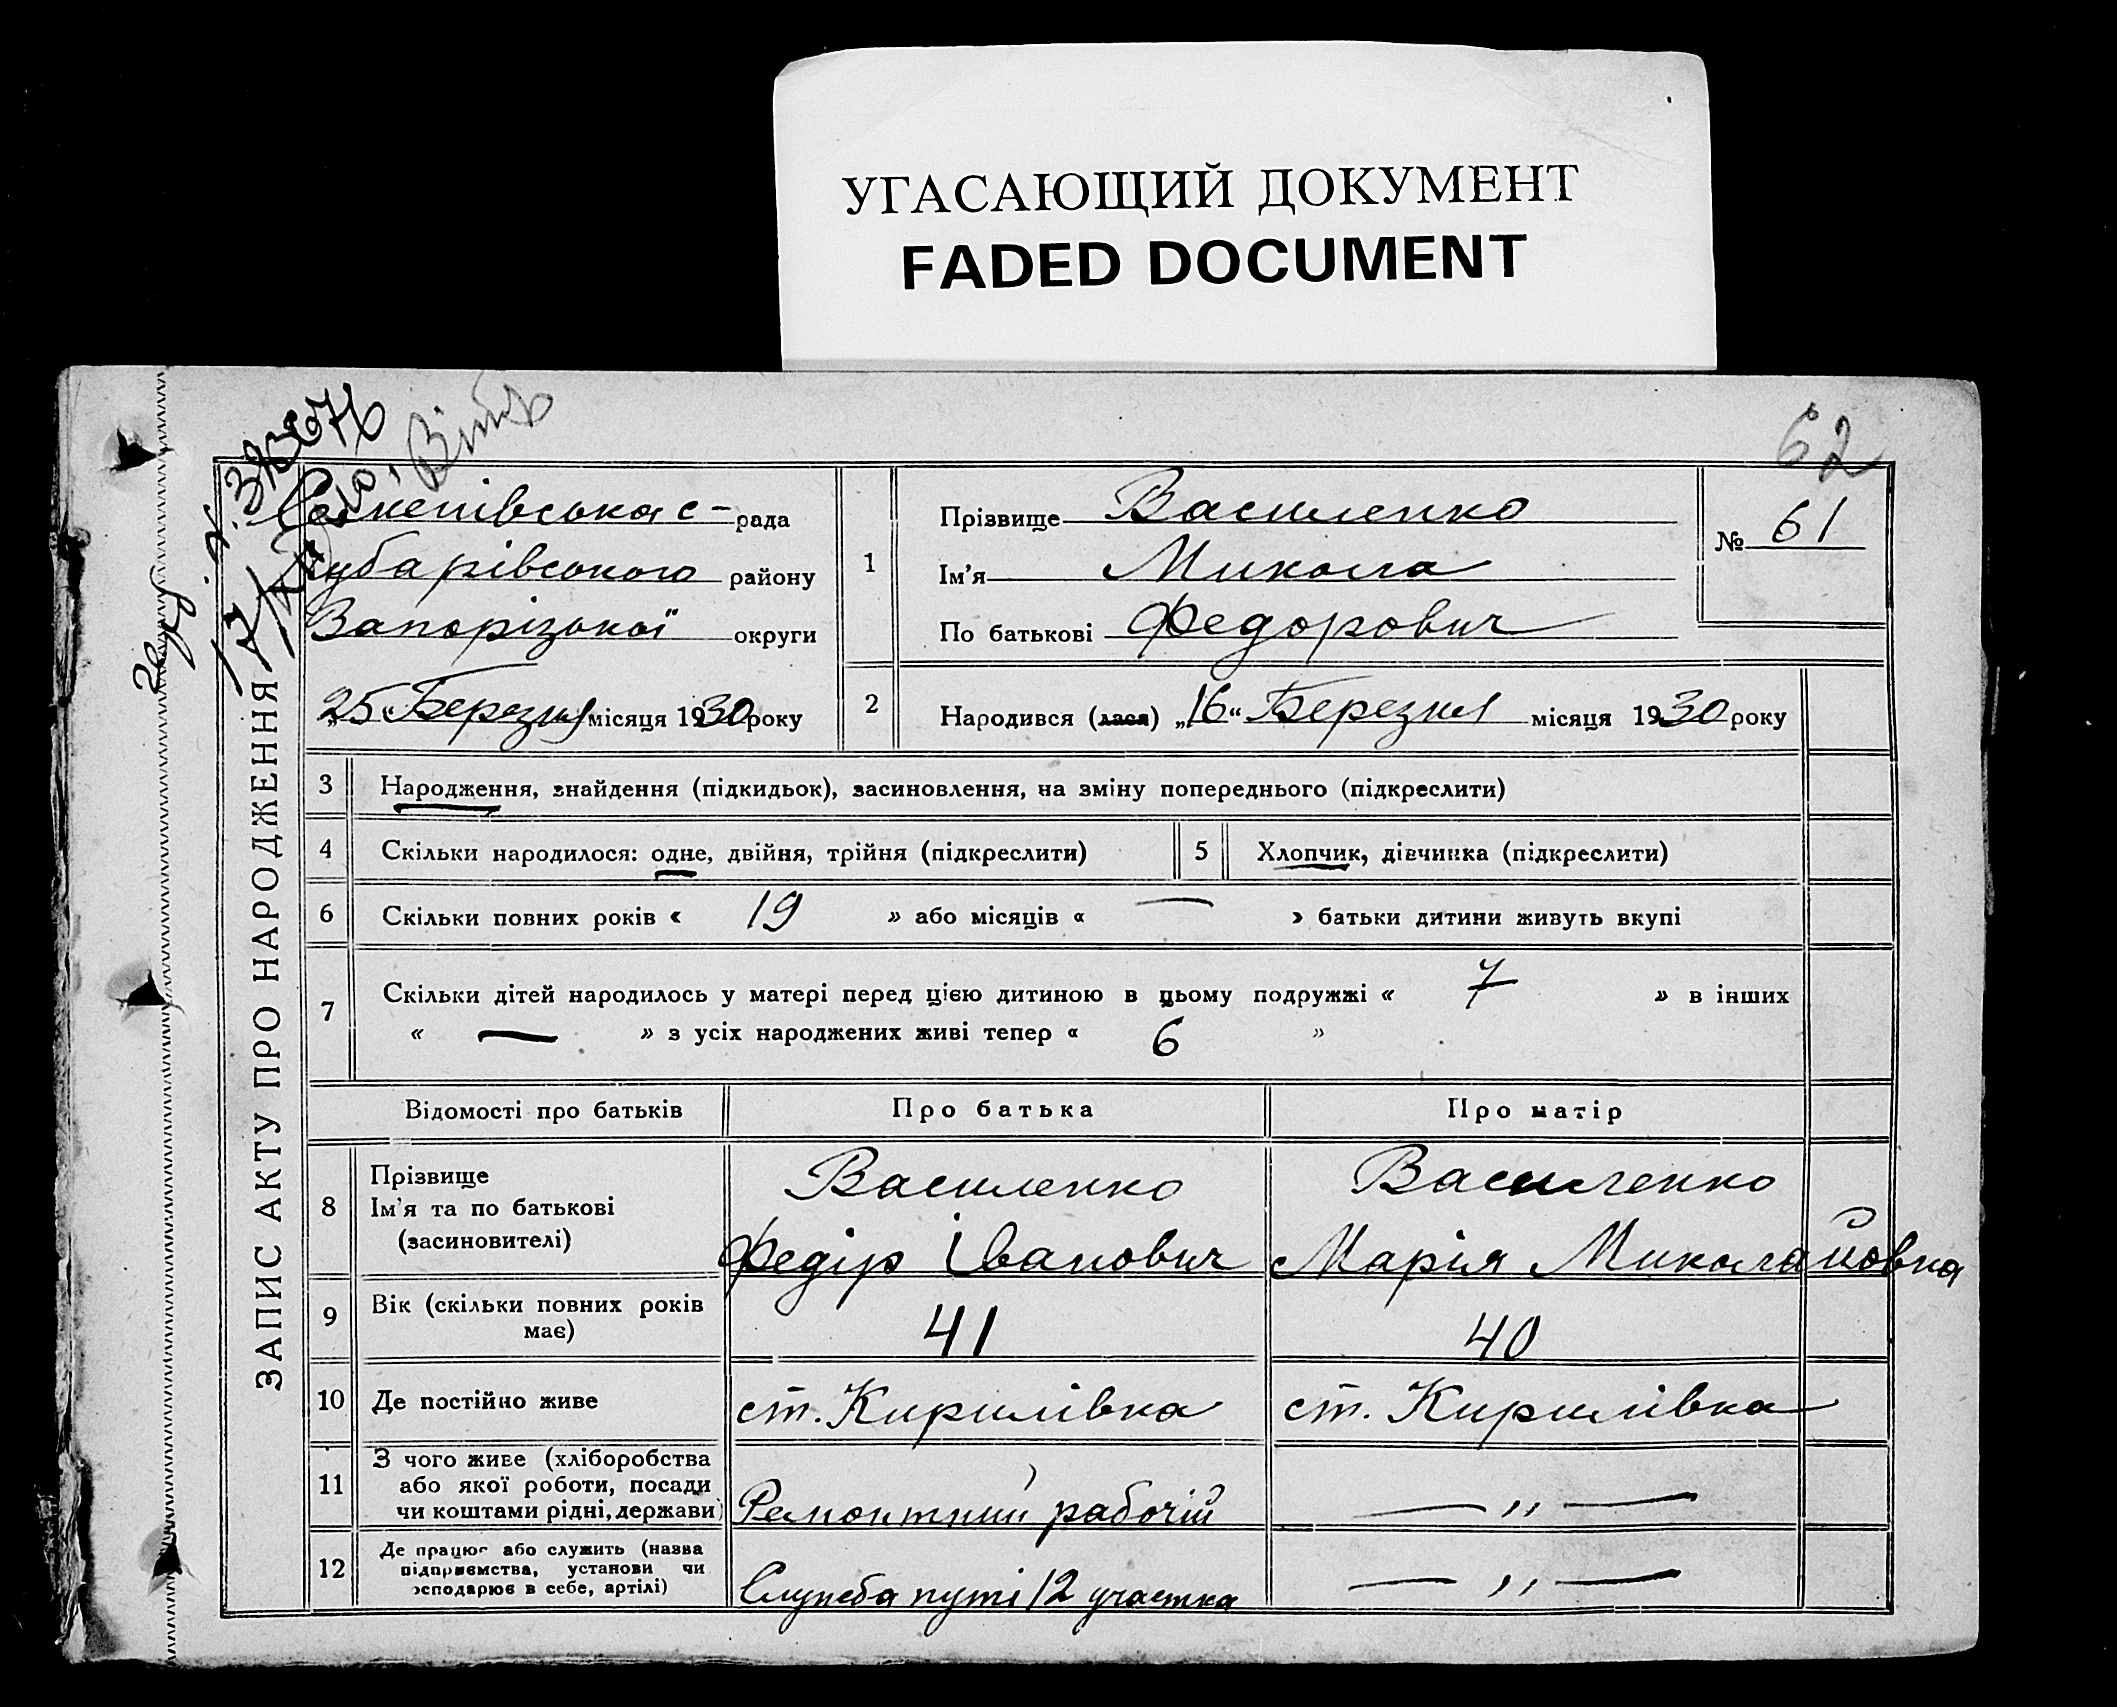 УГАСАЮЩИЙ ДОКУМЕНТ
FADED DOCUMENT
62
ЗАПИС АКТУ ПРО НАРОДЖЕННЯ
с- рада
района
Запорізької округи
„25“ Березня місяця 1930 року
1
Прізвище Василенко
Ім'я Микола
По батькові Федорович
№ 61
2
Народився (лася) „16“ Березня місяця 1930 року
3 Народження, знайдення (підкидьок), засиновлення, на зміну попереднього (підкреслити)
4 Скільки народилося: одне, двійня, трійня (підкреслити) 5 Хлопчик, дівчинка (підкреслити)
6 Скільки повних років « 19 » або місяців « — » батьки дитини живуть вкупі
7 Скільки дітей народилось у матері перед цією дитиною в цьому подружжі « 7 » в інших
« — » з усіх народжених живі тепер « 6 »
Відомості про батьків Про батька Про матір
8 Прізвище Василенко Василенко
Ім'я та по батькові
(засиновителі) Федір Іванович Марія Миколайовна
9 Вік (скільки повних років
має) 41 40
10 Де постійно живе ст. Кирилівка ст. Кирилівка
11 З чого живе (хліборобства
або якої роботи, посади
чи коштами рідні, держави) Ремонтний рабочій — „ —
12 Де працює або служить (назва
підприємства, установи чи
господарює в себе, артілі) Служба путі 12 участка — „ —